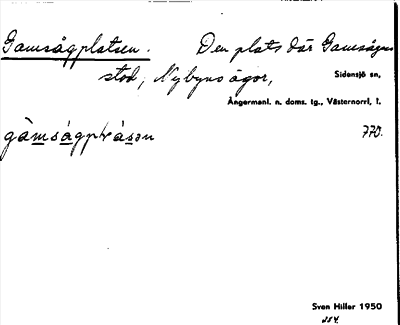 Gamsågplatsen. Den plats där Gamsågen
stod, Nybyns ägor, Sidensjö sn,
Ångermanl. n. doms. tg., Västernorrl. l.
770.
Sven Hiller 1950